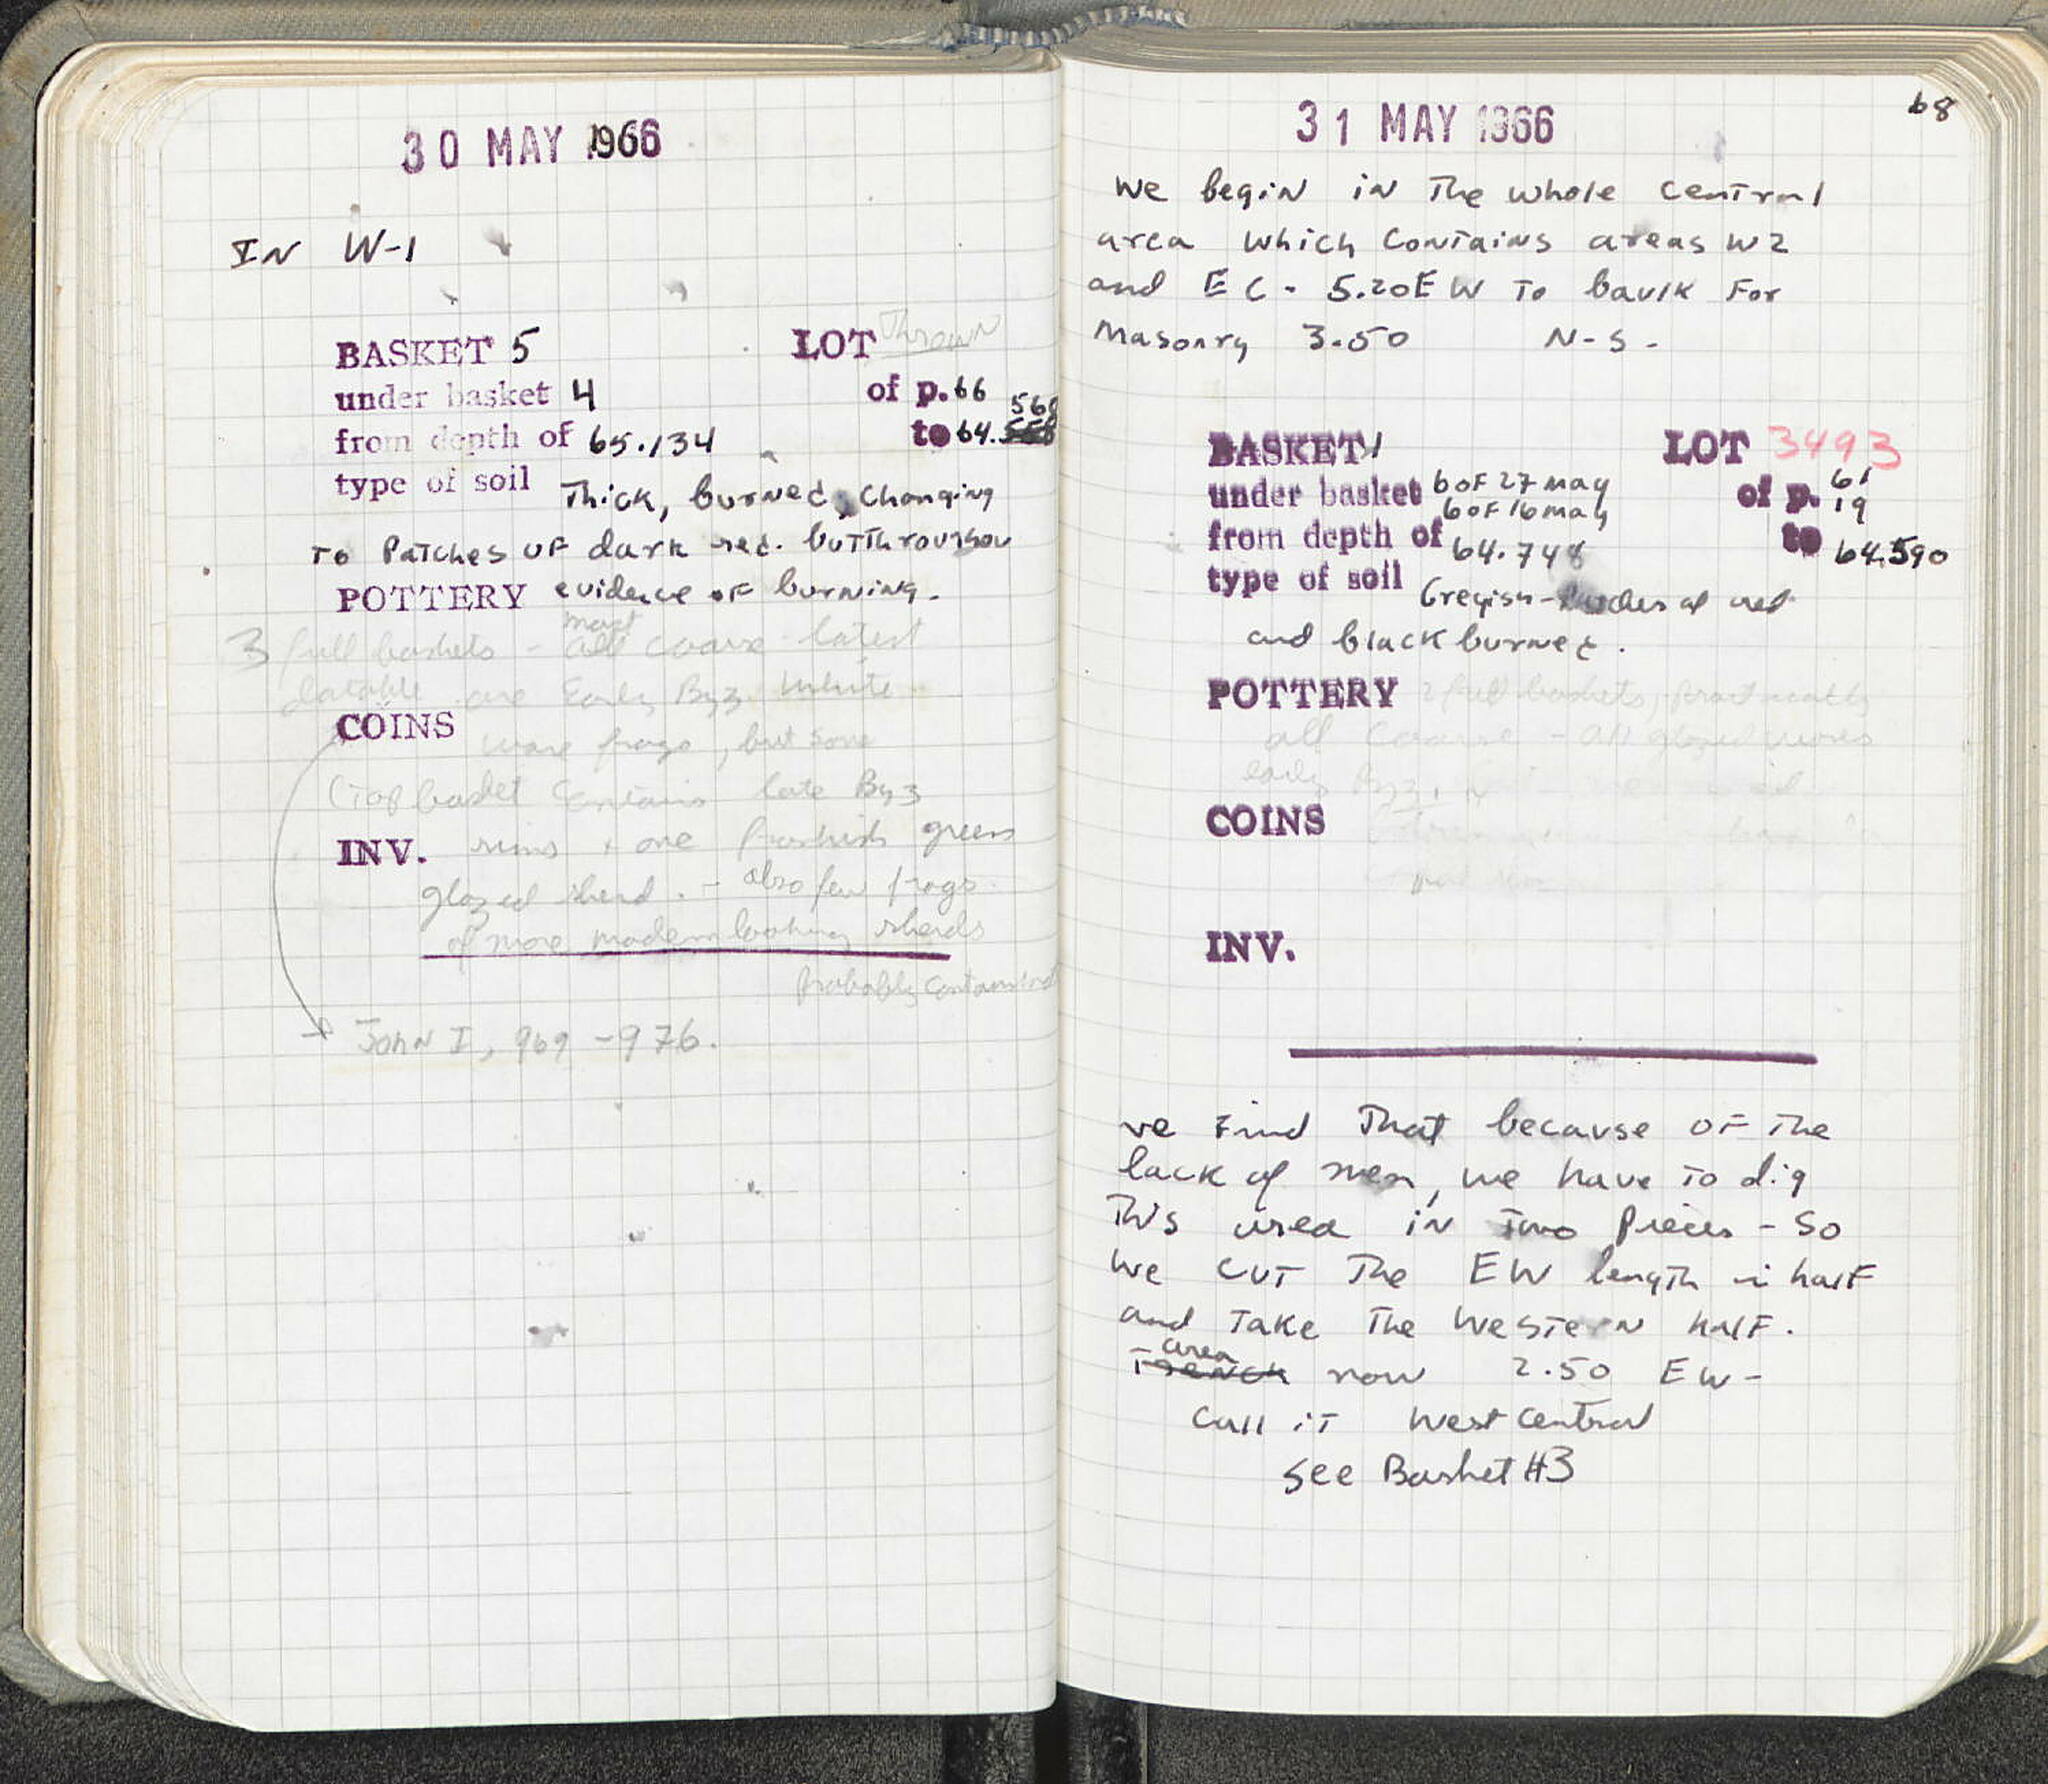 30 MAY 1966
IN W-1
BASKET 5 LOT Thrown
under basket 4 of p. 66
from depth of 65.134 to 64. 568
type of soil Thick, burned, changing
To Patches of dark red. but throughou
POTTERY evidence of burning.
3 full baskets - most coarse latest
datable are Early Byz. White
COINS ware frags, but some
(Top basket contains late Byz
INV. rims + one greens
glazed sherd. - also few frags.
of more modern looking sherds
probably contaminated
→ John I, 969 - 976.
68
31 MAY 1966
We begin in the whole central
area which contains areas W2
and EC - 5.20 EW to baulk For
Masonry 3.50 N-S -
BASKET 1 LOT 3493
under basket 6 of 27 may of p. 61
6 of 16 may 19
from depth of 64.748 to 64.590
type of soil Greyish - Patches of red
and black burned.
POTTERY 2 full baskets, practically
all coarse - all glazed
early Byz.
COINS
INV.
we find That because of The
lack of men, we have to dig
This area in Two Pieces - So
We cut The EW length in half
and Take The Western half.
area
Trench now 2.50 EW -
Call it West Central
See Basket #3